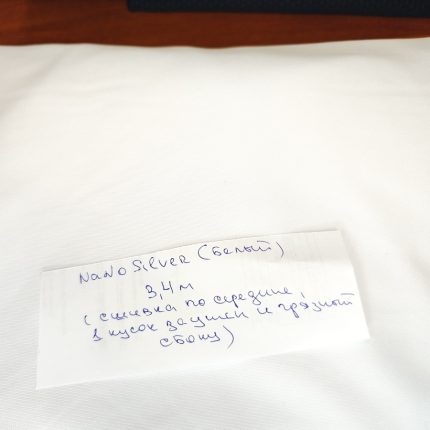 NaNo Silver (Белый)
3,4 м
(сшивка по середине,
1 кусок заужен и грязный
сбоку)